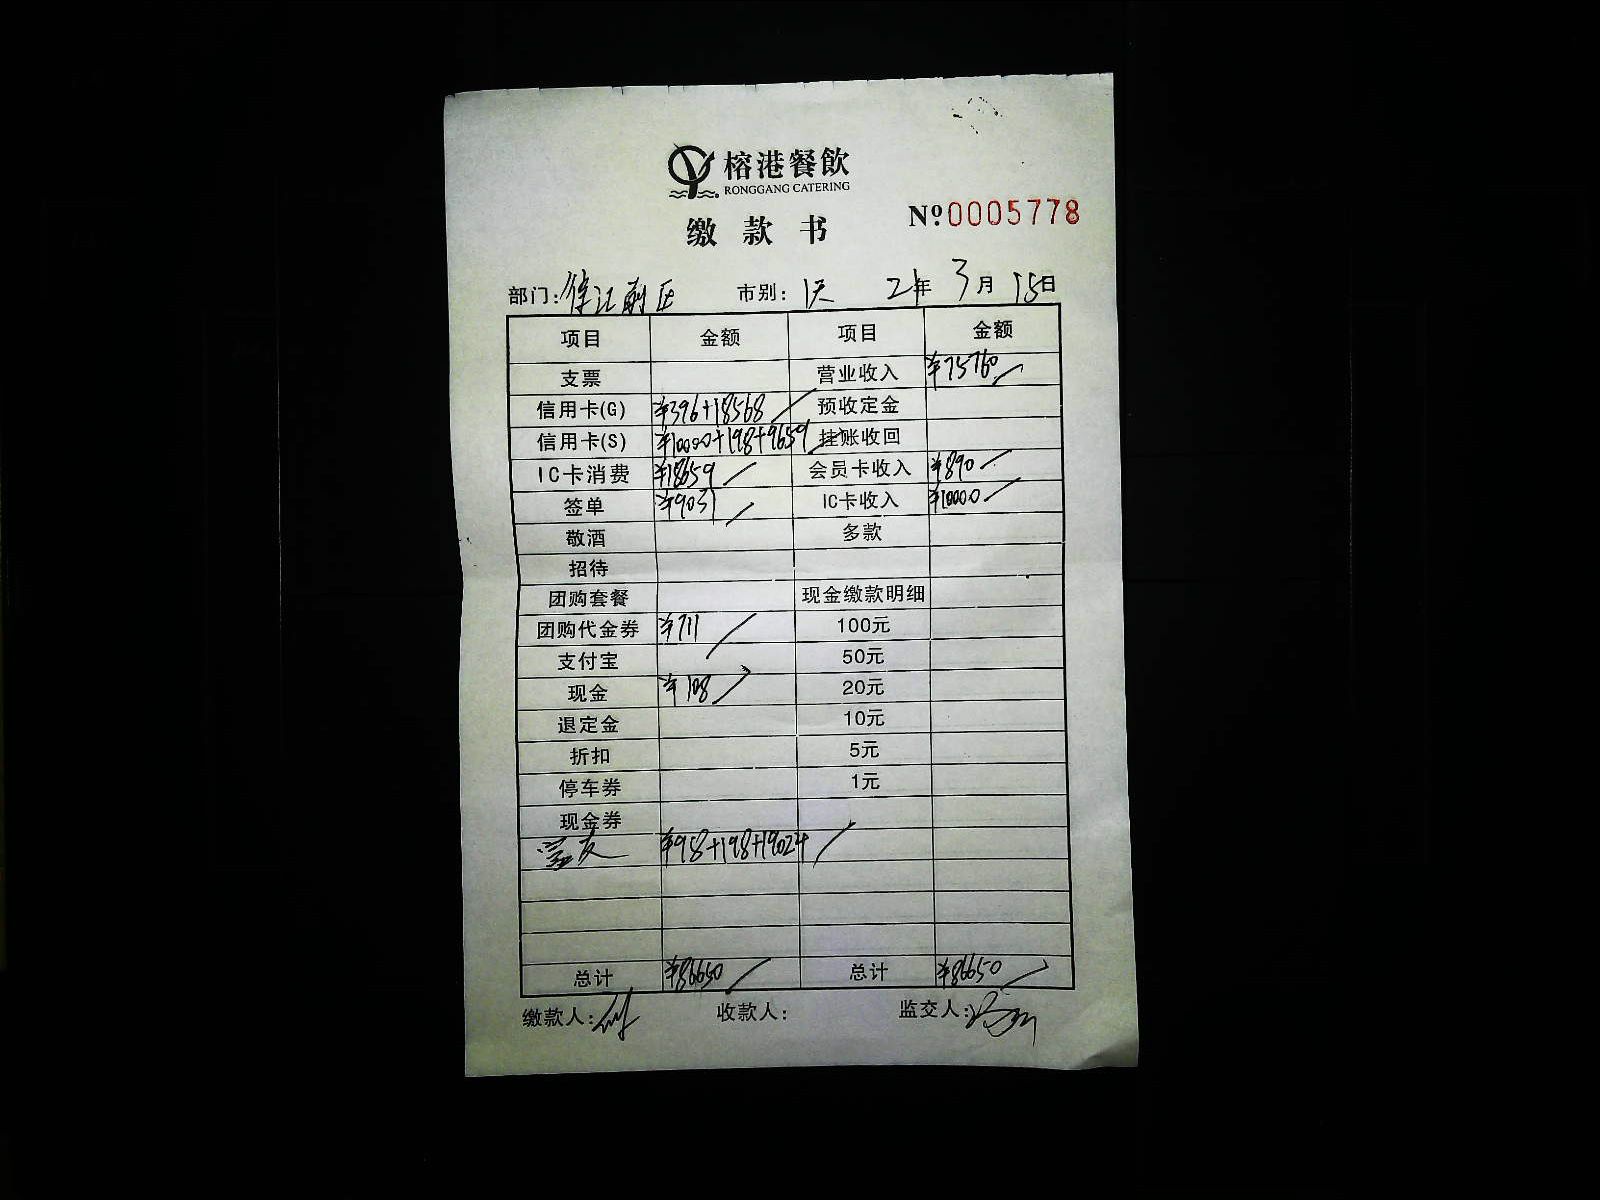 榕港餐飲
RONGGANG CATERING
缴款书 Nº0005778
部门: 市别: 21年 3月 15日
项目 金额 项目 金额
支票 营业收入 ¥75760
信用卡(G) ¥396+18568 预收定金
信用卡(S) ¥10000+198+9659 挂账收回
IC卡消费 ¥18659 会员卡收入 ¥890
签单 ¥9031 IC卡收入 ¥10000
敬酒 多款
招待
团购套餐 现金缴款明细
团购代金券 ¥711 100元
支付宝 50元
现金 ¥108 20元
退定金 10元
折扣 5元
停车券 1元
现金券
¥98+198+19024
总计 ¥86650 总计 ¥86650
缴款人: 收款人: 监交人: